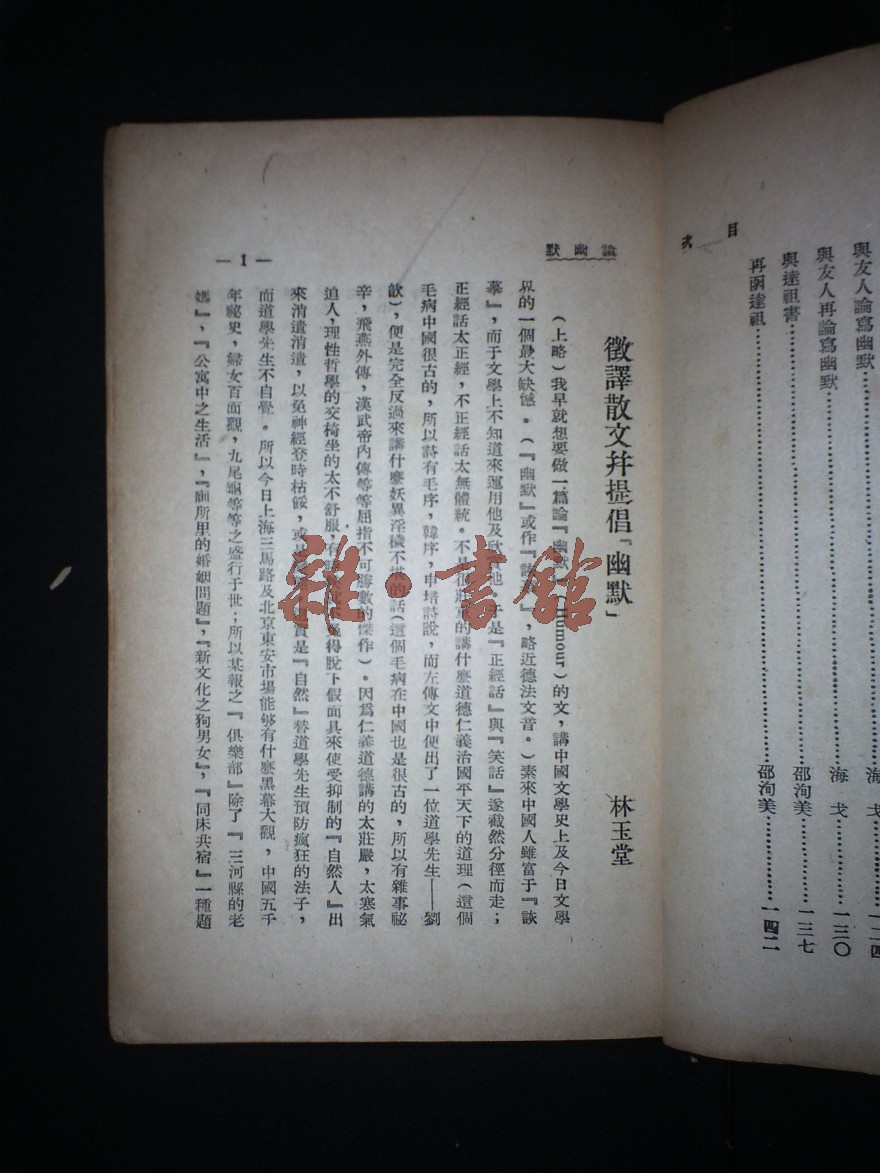 目次
與友人論寫幽默……海戈……一二四
與友人再論寫幽默……海戈……一三〇
與達祖書……邵洵美……一三七
再函達祖……邵洵美……一四二
論幽默
— 1 —
徵譯散文幷提倡「幽默」
林玉堂
(上略)我早就想要做一篇論『幽默』(Humour)的文,講中國文學史上及今日文學
界的一個最大缺憾。(『幽默』或作『詼,略近德法文音。)素來中國人雖富于『詼
摹』,而于文學上不知道來運用他及欣賞他。于是『正經話』與『笑話』遂截然分徑而走;
正經話太正經,不正經話太無體統。不是很莊重的講什麼道德仁義治國平天下的道理(這個
毛病中國很古的,所以詩有毛序,韓序,申培詩說,而左傳文中便出了一位道學先生——劉
歆),便是完全反過來講什麼妖異淫穢不堪的話(這個毛病在中國也是很古的,所以有雜事祕
辛,飛燕外傳,漢武帝內傳等等屈指不可勝數的傑作)。因爲仁義道德講的太莊嚴,太寒氣
迫人,理性哲學的交椅坐的太不舒服,有時得脫下假面具來使受抑制的『自然人』出
來消遣消遣,以免神經登時枯餒,或是實是『自然』替道學先生預防瘋狂的法子,
而道學先生不自覺。所以今日上海三馬路及北京東安市場能够有什麼黑幕大觀,中國五千
年祕史,婦女百面觀,九尾龜等等之盛行于世;所以某報之『俱樂部』除了『三河縣的老
媽』,『公寓中之生活』,『廁所里的婚姻問題』,『新文化之狗男女』,『同床共宿』一種題
雜·書館